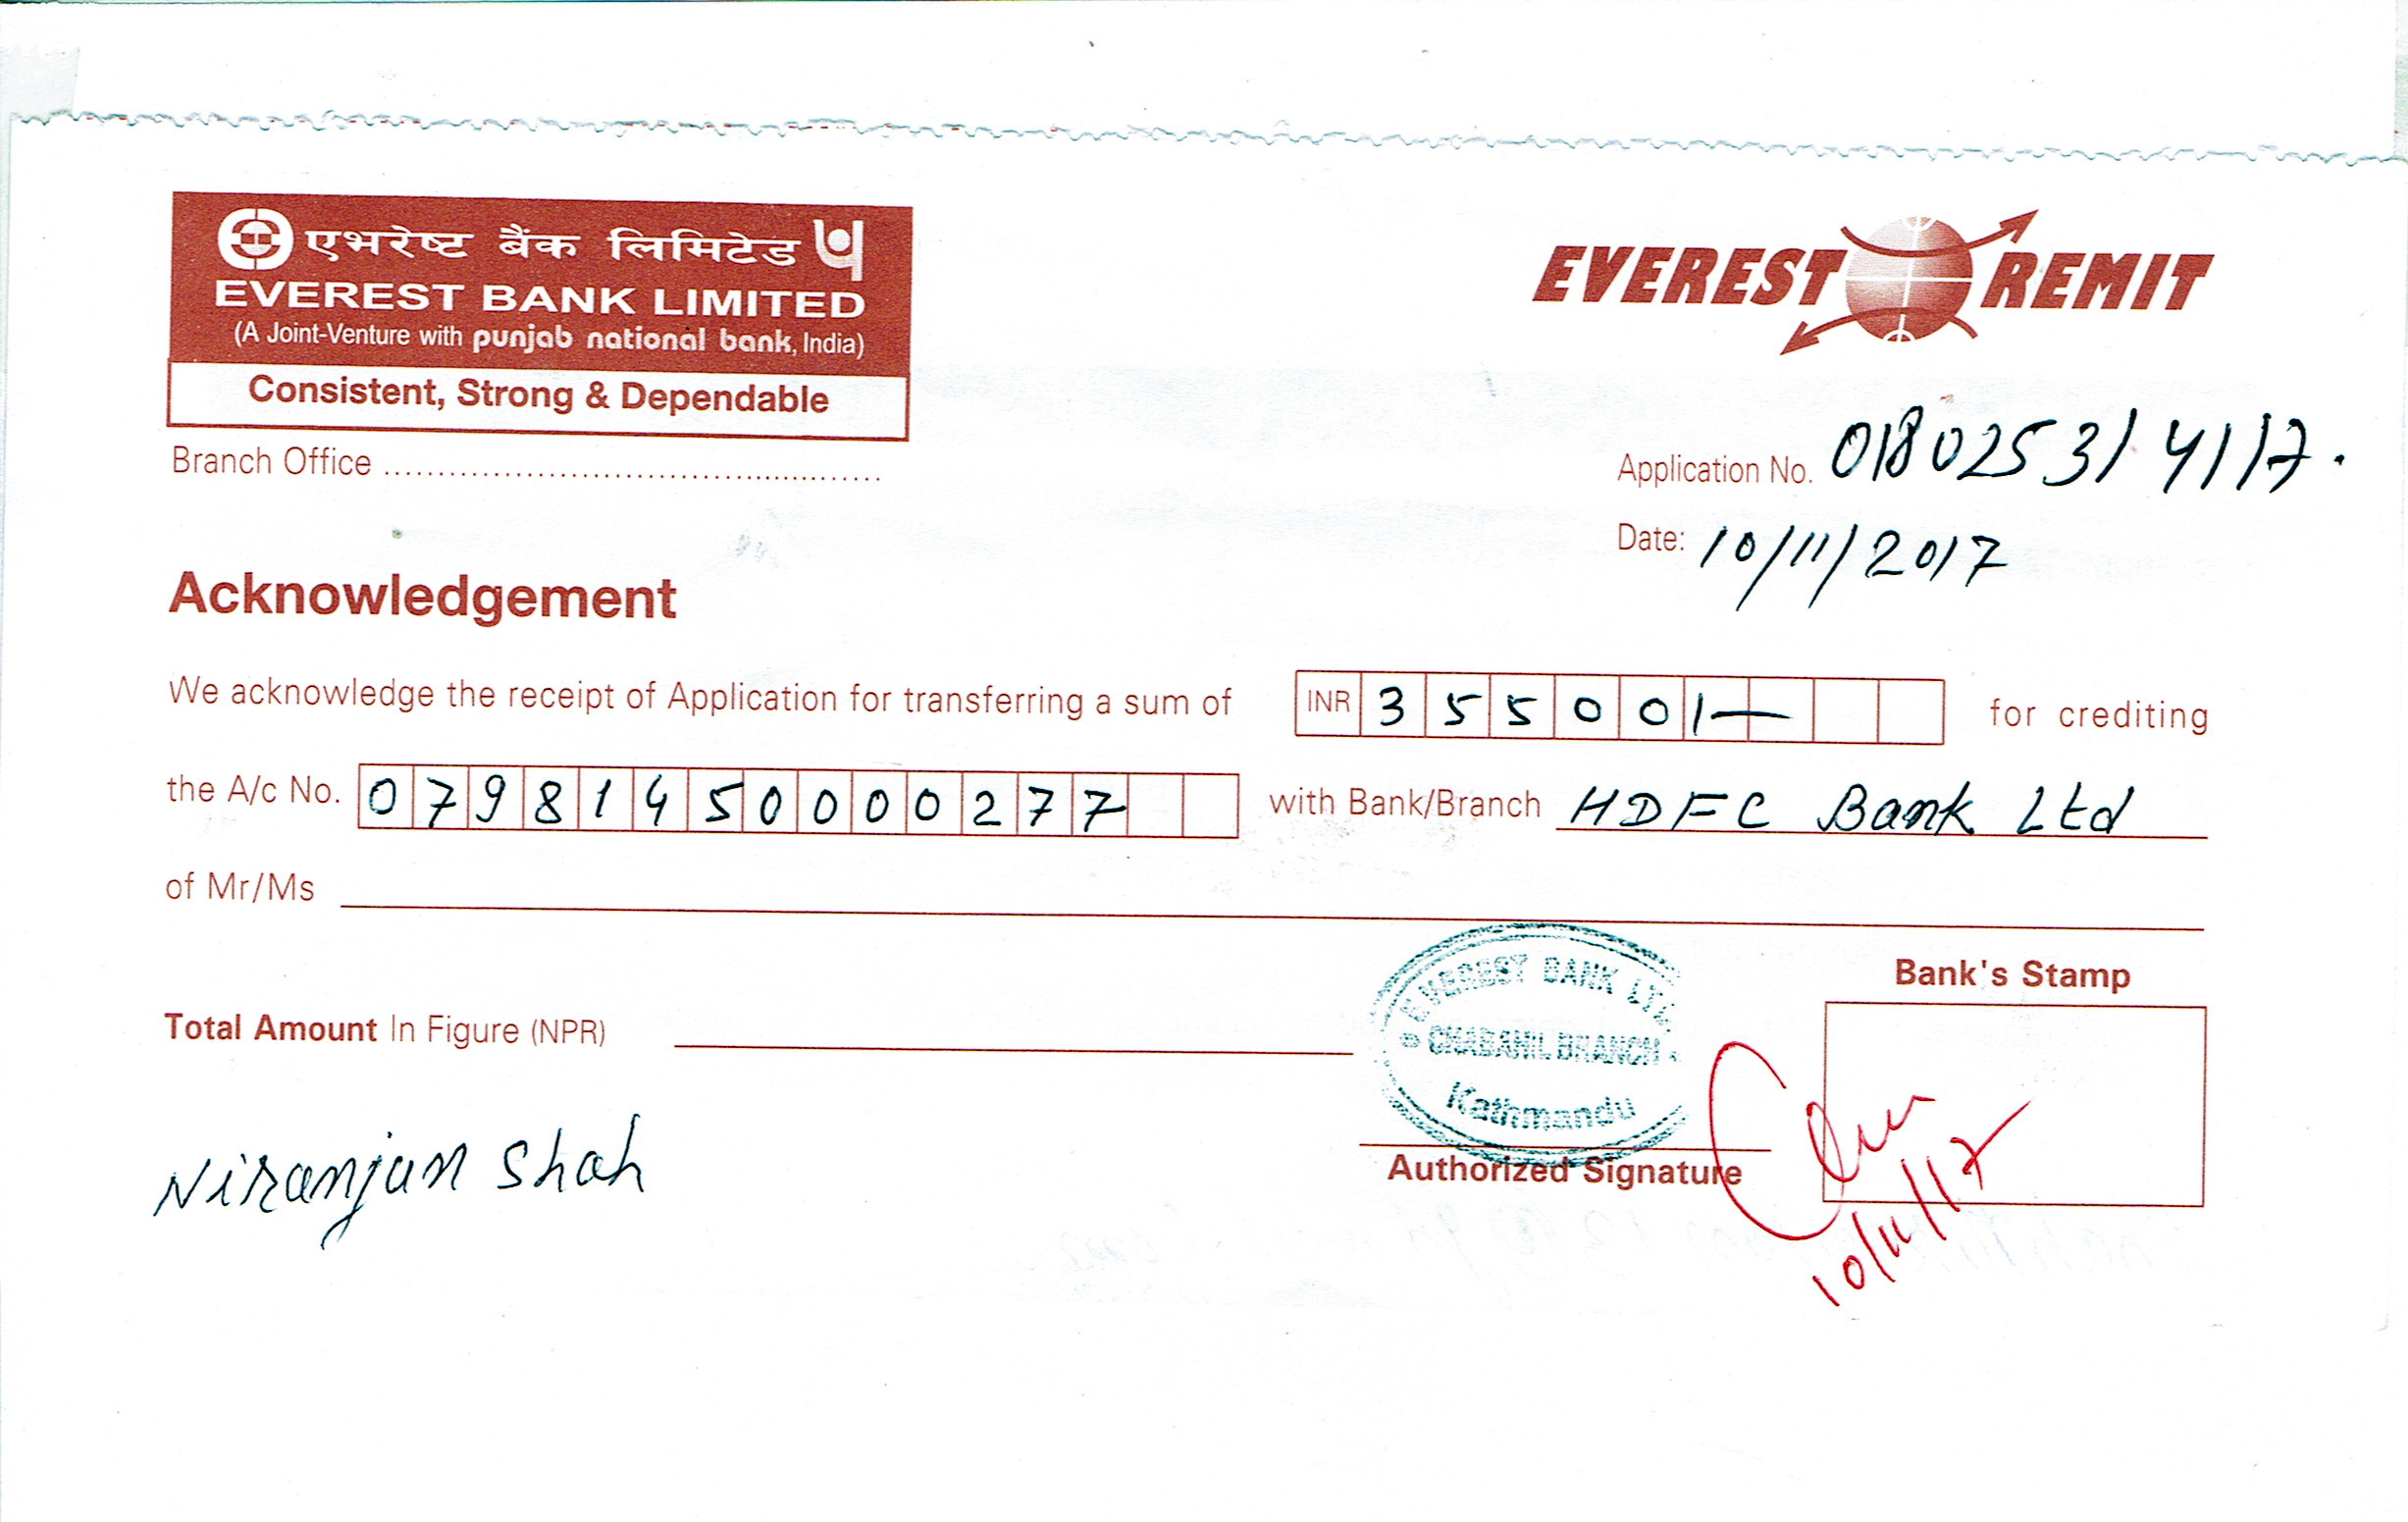 एभरेष्ट बैंक लिमिटेड
EVEREST BANK LIMITED
(A Joint-Venture with punjab national bank, India)
Consistent, Strong & Dependable
EVEREST REMIT
Branch Office
Application No. 0180253/41/17.
Date: 10/11/2017
Acknowledgement
We acknowledge the receipt of Application for transferring a sum of INR 35500/- for crediting
the A/c No. 07981450000277 with Bank/Branch HDFC Bank Ltd
of Mr/Ms
EVEREST BANK LTD.
CHABAHIL BRANCH
Kathmandu
Bank's Stamp
Total Amount In Figure (NPR)
Authorized Signature
Niranjan Shah
10/11/17